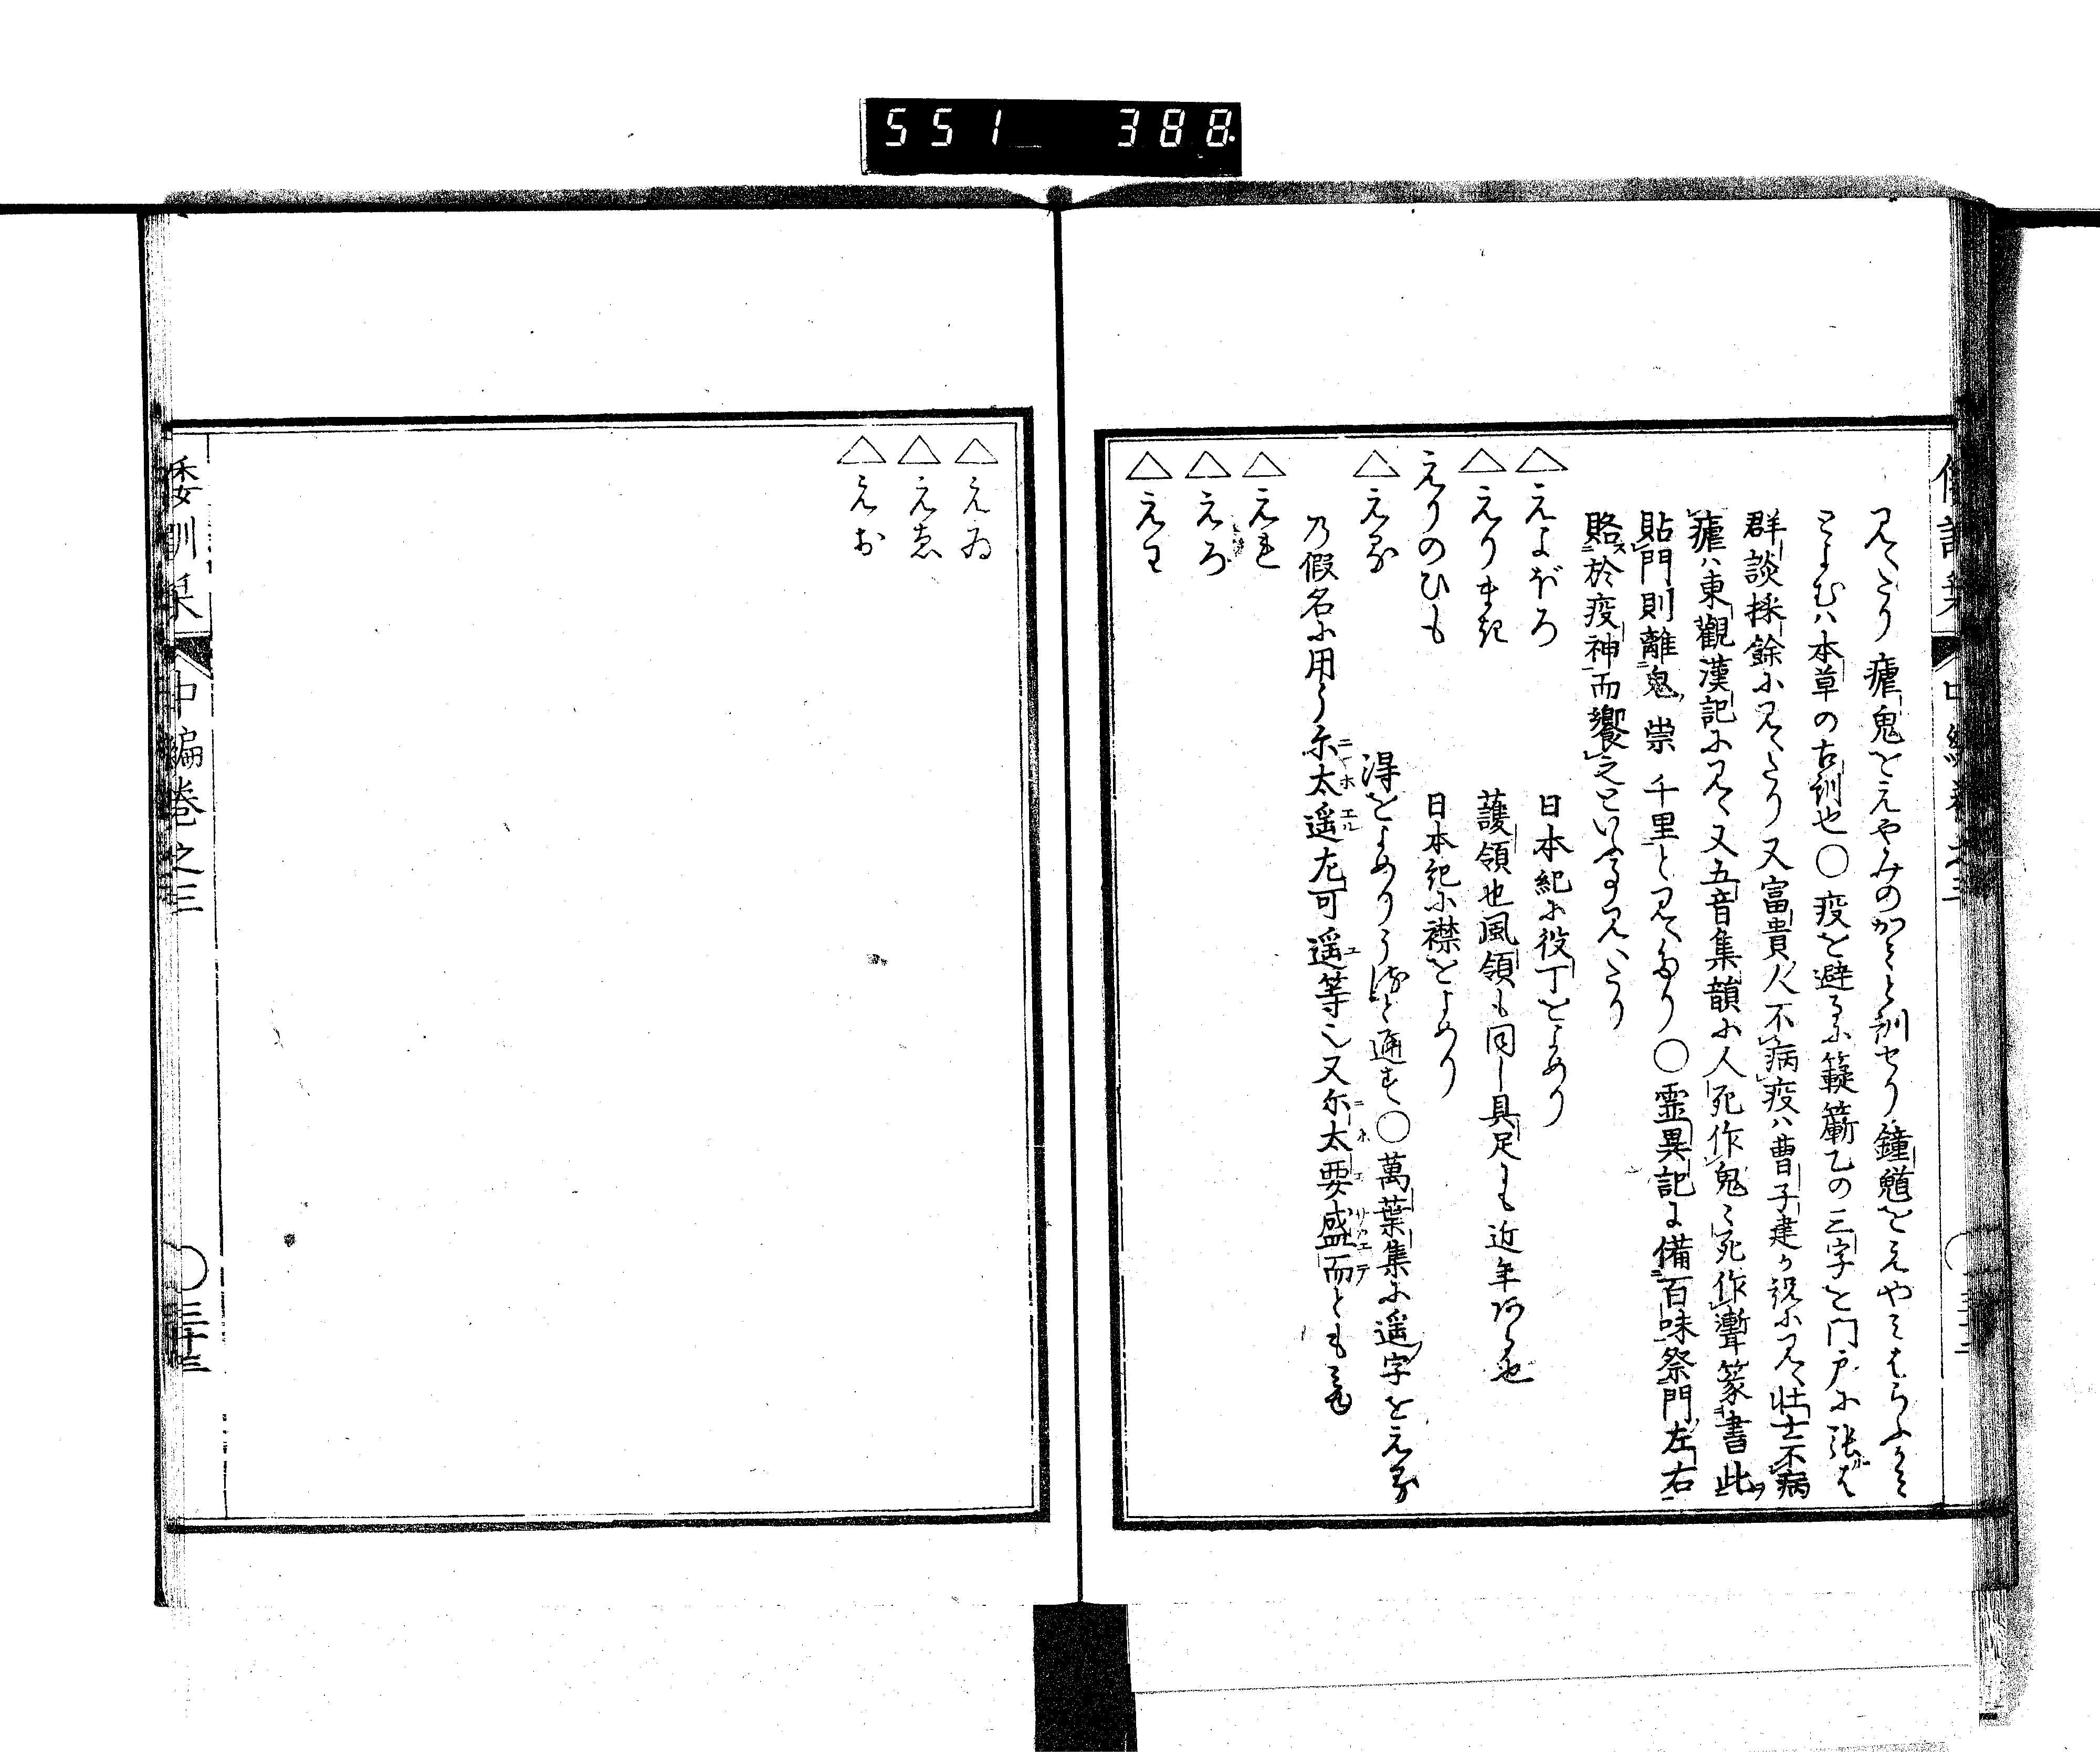 551 388
見えたり瘧鬼をえやみのかミと訓せり鐘馗をえやミはらふかミ
とよむハ本草の古訓也○疫を避るに簸簖乙の三字を門戸に張ば
群談採餘に見えたり又富貴人不病疫ハ曹子建か説に見え壮士不病
瘧ハ東觀漢記に見ゆ又五音集韻に人死作鬼ミ死作聻篆書此
貼門則離鬼祟千里と見えたり○霊異記に備百味祭門左右
賂於疫神而饗之といふ事見へたり
△えよぼろ 日本紀に役丁をよめり
△えりまき 護領也風領も同し具足にも近年ある也
えりのひも 日本紀に襟をよめり
△える 得をよめりうると通す○萬葉集に遥字をえる
乃假名に用う尓太遥左可遥等也又尓太要盛而とも見ゆ
△えれ
△えろ
△えわ
△えゐ
△えゑ
△えお
倭訓栞 中編巻之三 ○三十三